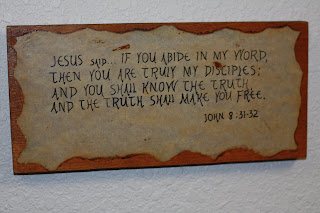 JESUS SAID... IF YOU ABIDE IN MY WORD,
THEN YOU ARE TRULY MY DISCIPLES;
AND YOU SHALL KNOW THE TRUTH
AND THE TRUTH SHALL MAKE YOU FREE.
JOHN 8:31-32